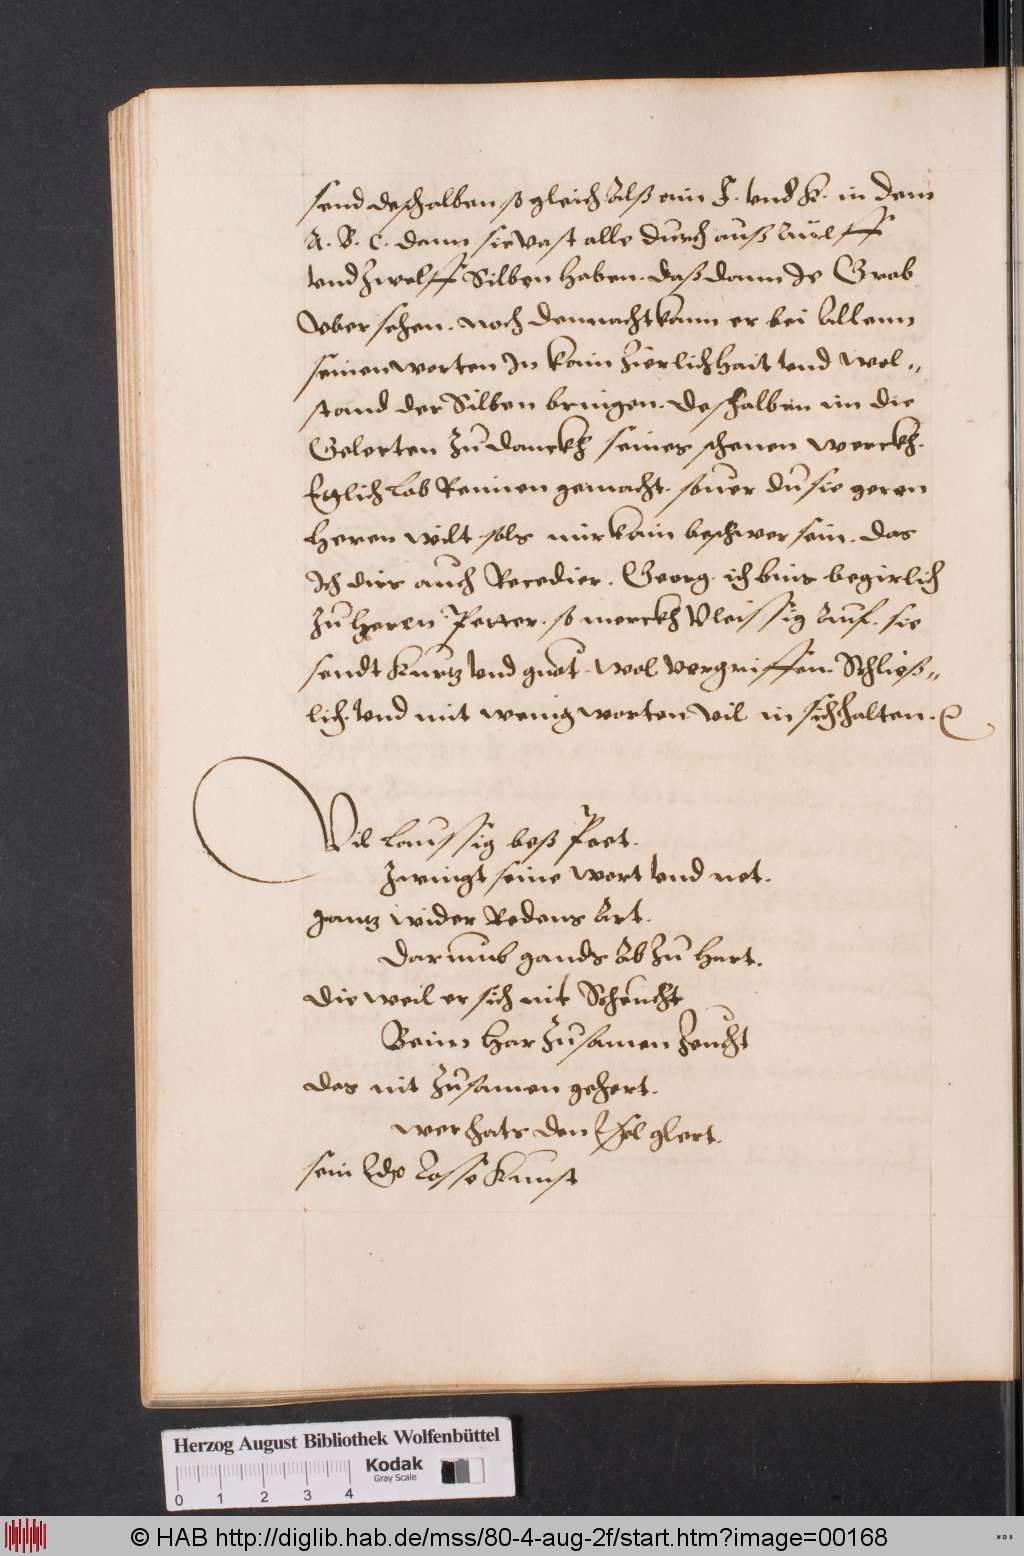 send deshalben so gleich Alß ain J. vnd K. in dem
A. B. C. dann sie vast alle durch auß Aůlff
vnd Zwelff Silben haben. daß dann Je Grob
vbersehen. noch dennacht kann er bei Allenn
seinen worten In kain Zierlichhait vnd wol=
stand der Silben bringen. deshalben im die
Gelerten Zů danckh seines schenen werckh.
Etlich Lob Reimen gemacht. souer dů sie geren
heren wilt. sols mir kain beschwer sein. das
Ich dirs auch Recedier. Georg. ich bins begirlich
Zů heren. Petter. so merckh Vleissig Auf. sie
sendt Kurtz vnd guot. wol vergriffen. Schließ=
lich. vnd mit wenig worten vil in sich halten.
Vil Laussig beß Poet.
Zwingt seine wort vnd net.
gantz wider Redens Art.
Darumb gands Ab Zů hart.
die weil er sich nit Scheucht
Beim har Zůsamen Zeucht
das nit Zůsamen gehert.
wer hats den Esel glert.
sein Lose Kunst
Herzog August Bibliothek Wolfenbüttel
Kodak
Gray Scale
0 1 2 3 4
© HAB http://diglib.hab.de/mss/80-4-aug-2f/start.htm?image=00168